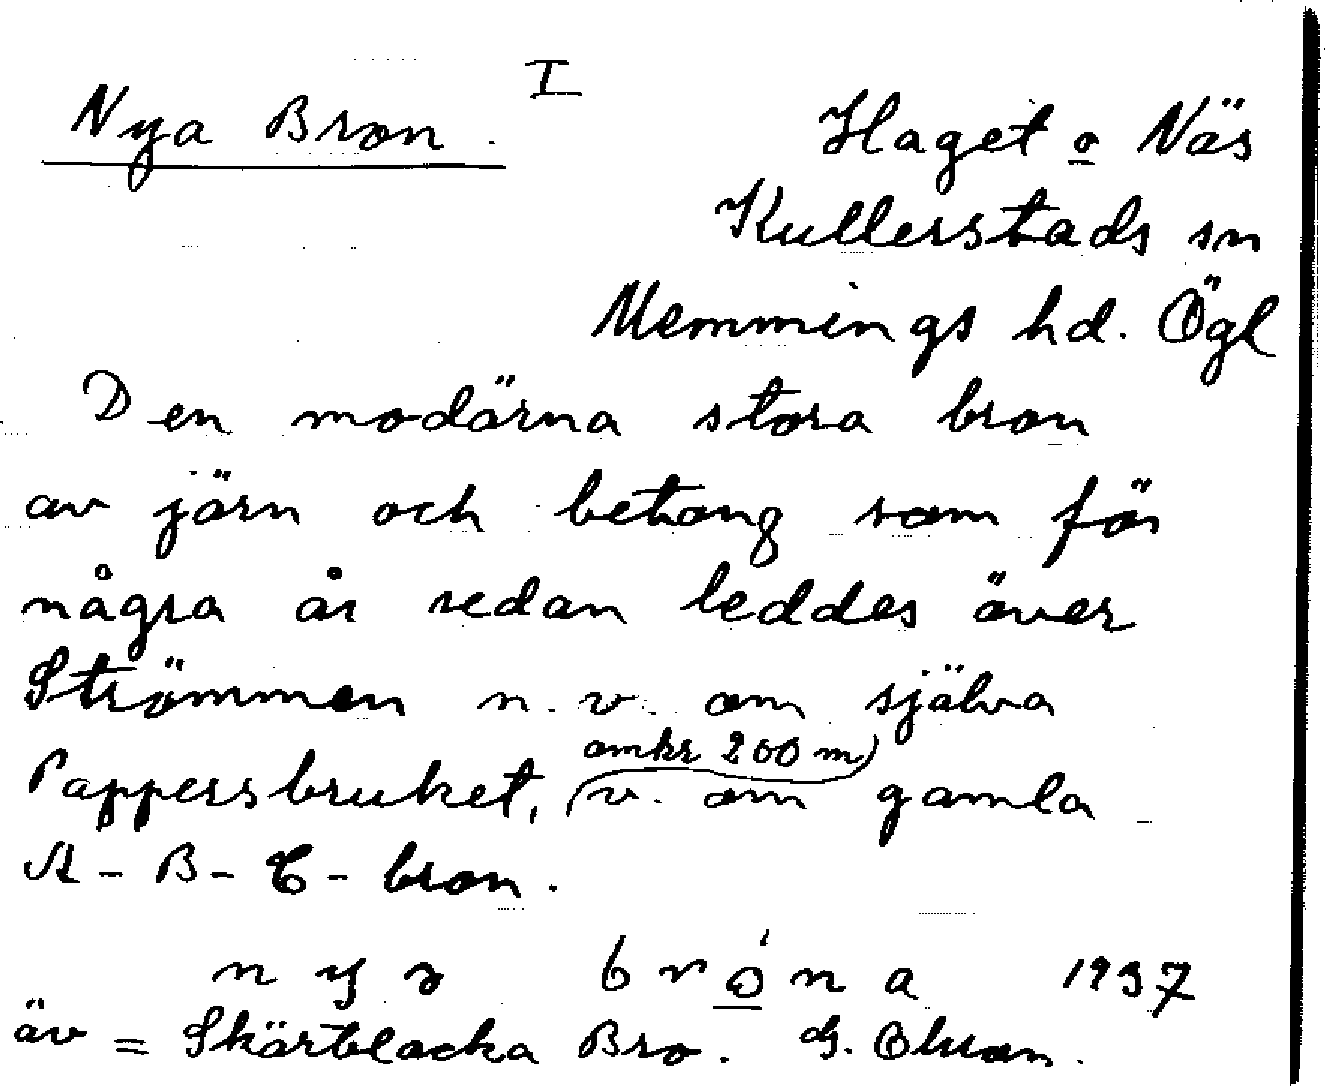 I
Nya Bron.
Haget o Näs
Kullerstads sn
Memmings hd. Ögl
Den modärna stora bron
av järn och betong som för
några år sedan leddes över
Strömmen n. v. om själva
Pappersbruket, (v. om gamla
omkr 200 m)
A-B-C-bron.
1937
äv = Skärblacka Bro. G. Olson.